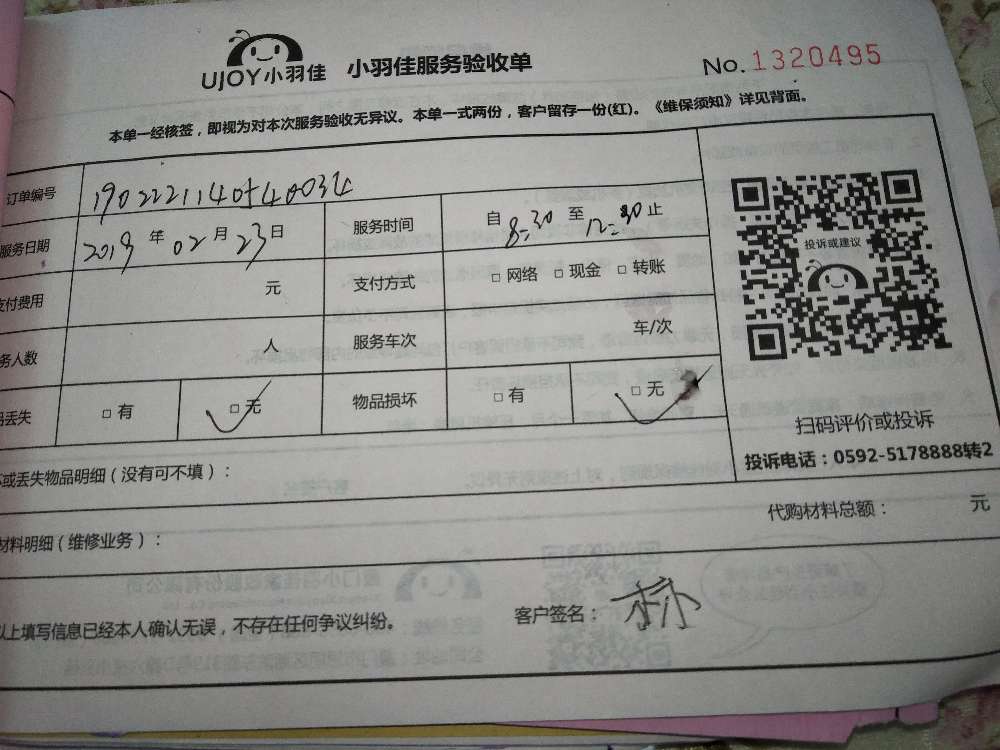 UJOY小羽佳 小羽佳服务验收单 No.1320495
本单一经核签，即视为对本次服务验收无异议。本单一式两份，客户留存一份(红)。《维保须知》详见背面。
订单编号
服务日期 2019年02月23日 服务时间 自8:30至12:30止
支付费用 元 支付方式 □网络 □现金 □转账
务人数 人 服务车次 车/次
丢失 □有 □无 物品损坏 □有 □无
投诉或建议
扫码评价或投诉
投诉电话：0592-5178888转2
或丢失物品明细（没有可不填）：
材料明细（维修业务）： 代购材料总额： 元
以上填写信息已经本人确认无误，不存在任何争议纠纷。 客户签名：林